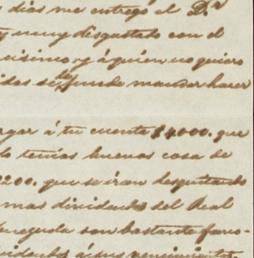 dias me entrego el D.r
y muy disgustado con el
quisimo y á quien no quiero
se le puede mandar hacer
rgar á tu cuenta $4000. que
lo tenias buenos cosa de
200. que se iran desquitando
mas dividendos del Real
son bastante